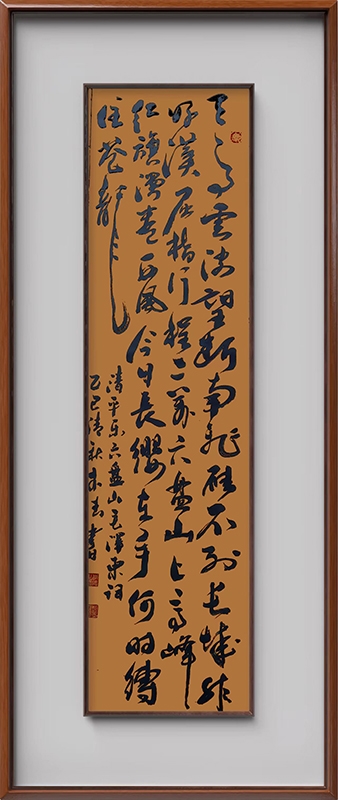 天高云淡望断南飞雁不到长城非
好汉屈指行程二万六盘山上高峰
红旗漫卷西风今日长缨在手何时缚
住苍龙
清平乐六盘山毛泽东词
乙巳清秋
书